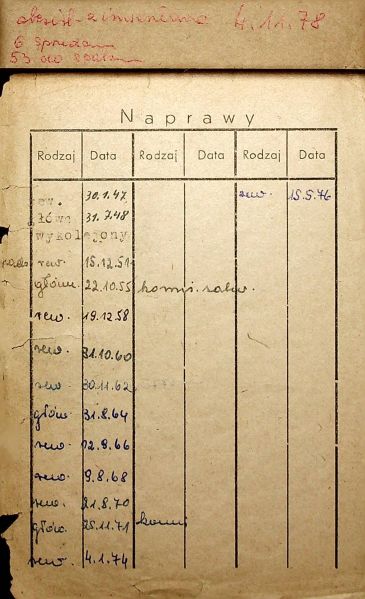 4.11.78
6 sprzedan
53 do spal
Naprawy
Rodzaj Data Rodzaj Data Rodzaj Data
rew. 30.1.47 rew. 15.5.76
główn 31.7.48
wykolejony
rew. 15.12.51
główn. 22.10.55
rew. 19.12.58
rew. 31.10.60
rew. 30.11.62
główn. 31.8.64
rew. 12.9.66
rew. 9.8.68
rew. 21.8.70
główn. 25.11.71
rew. 4.1.74